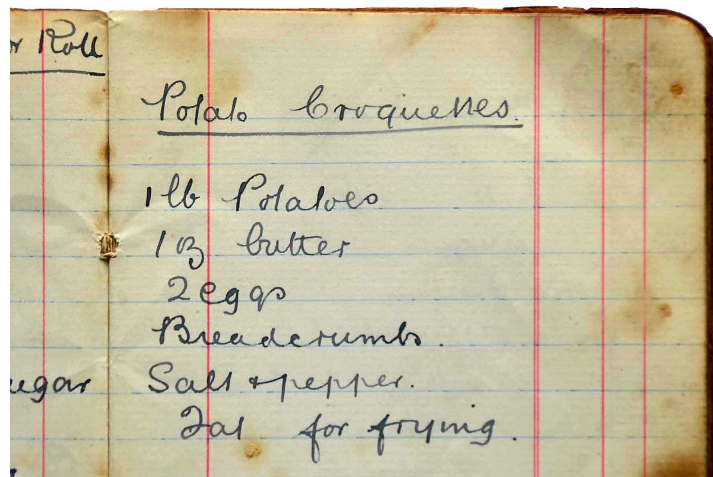 Roll
Potato Croquettes.
1 lb Potatoes
1 oz butter
2 eggs
Breadcrumbs.
Salt & pepper.
Fat for frying.